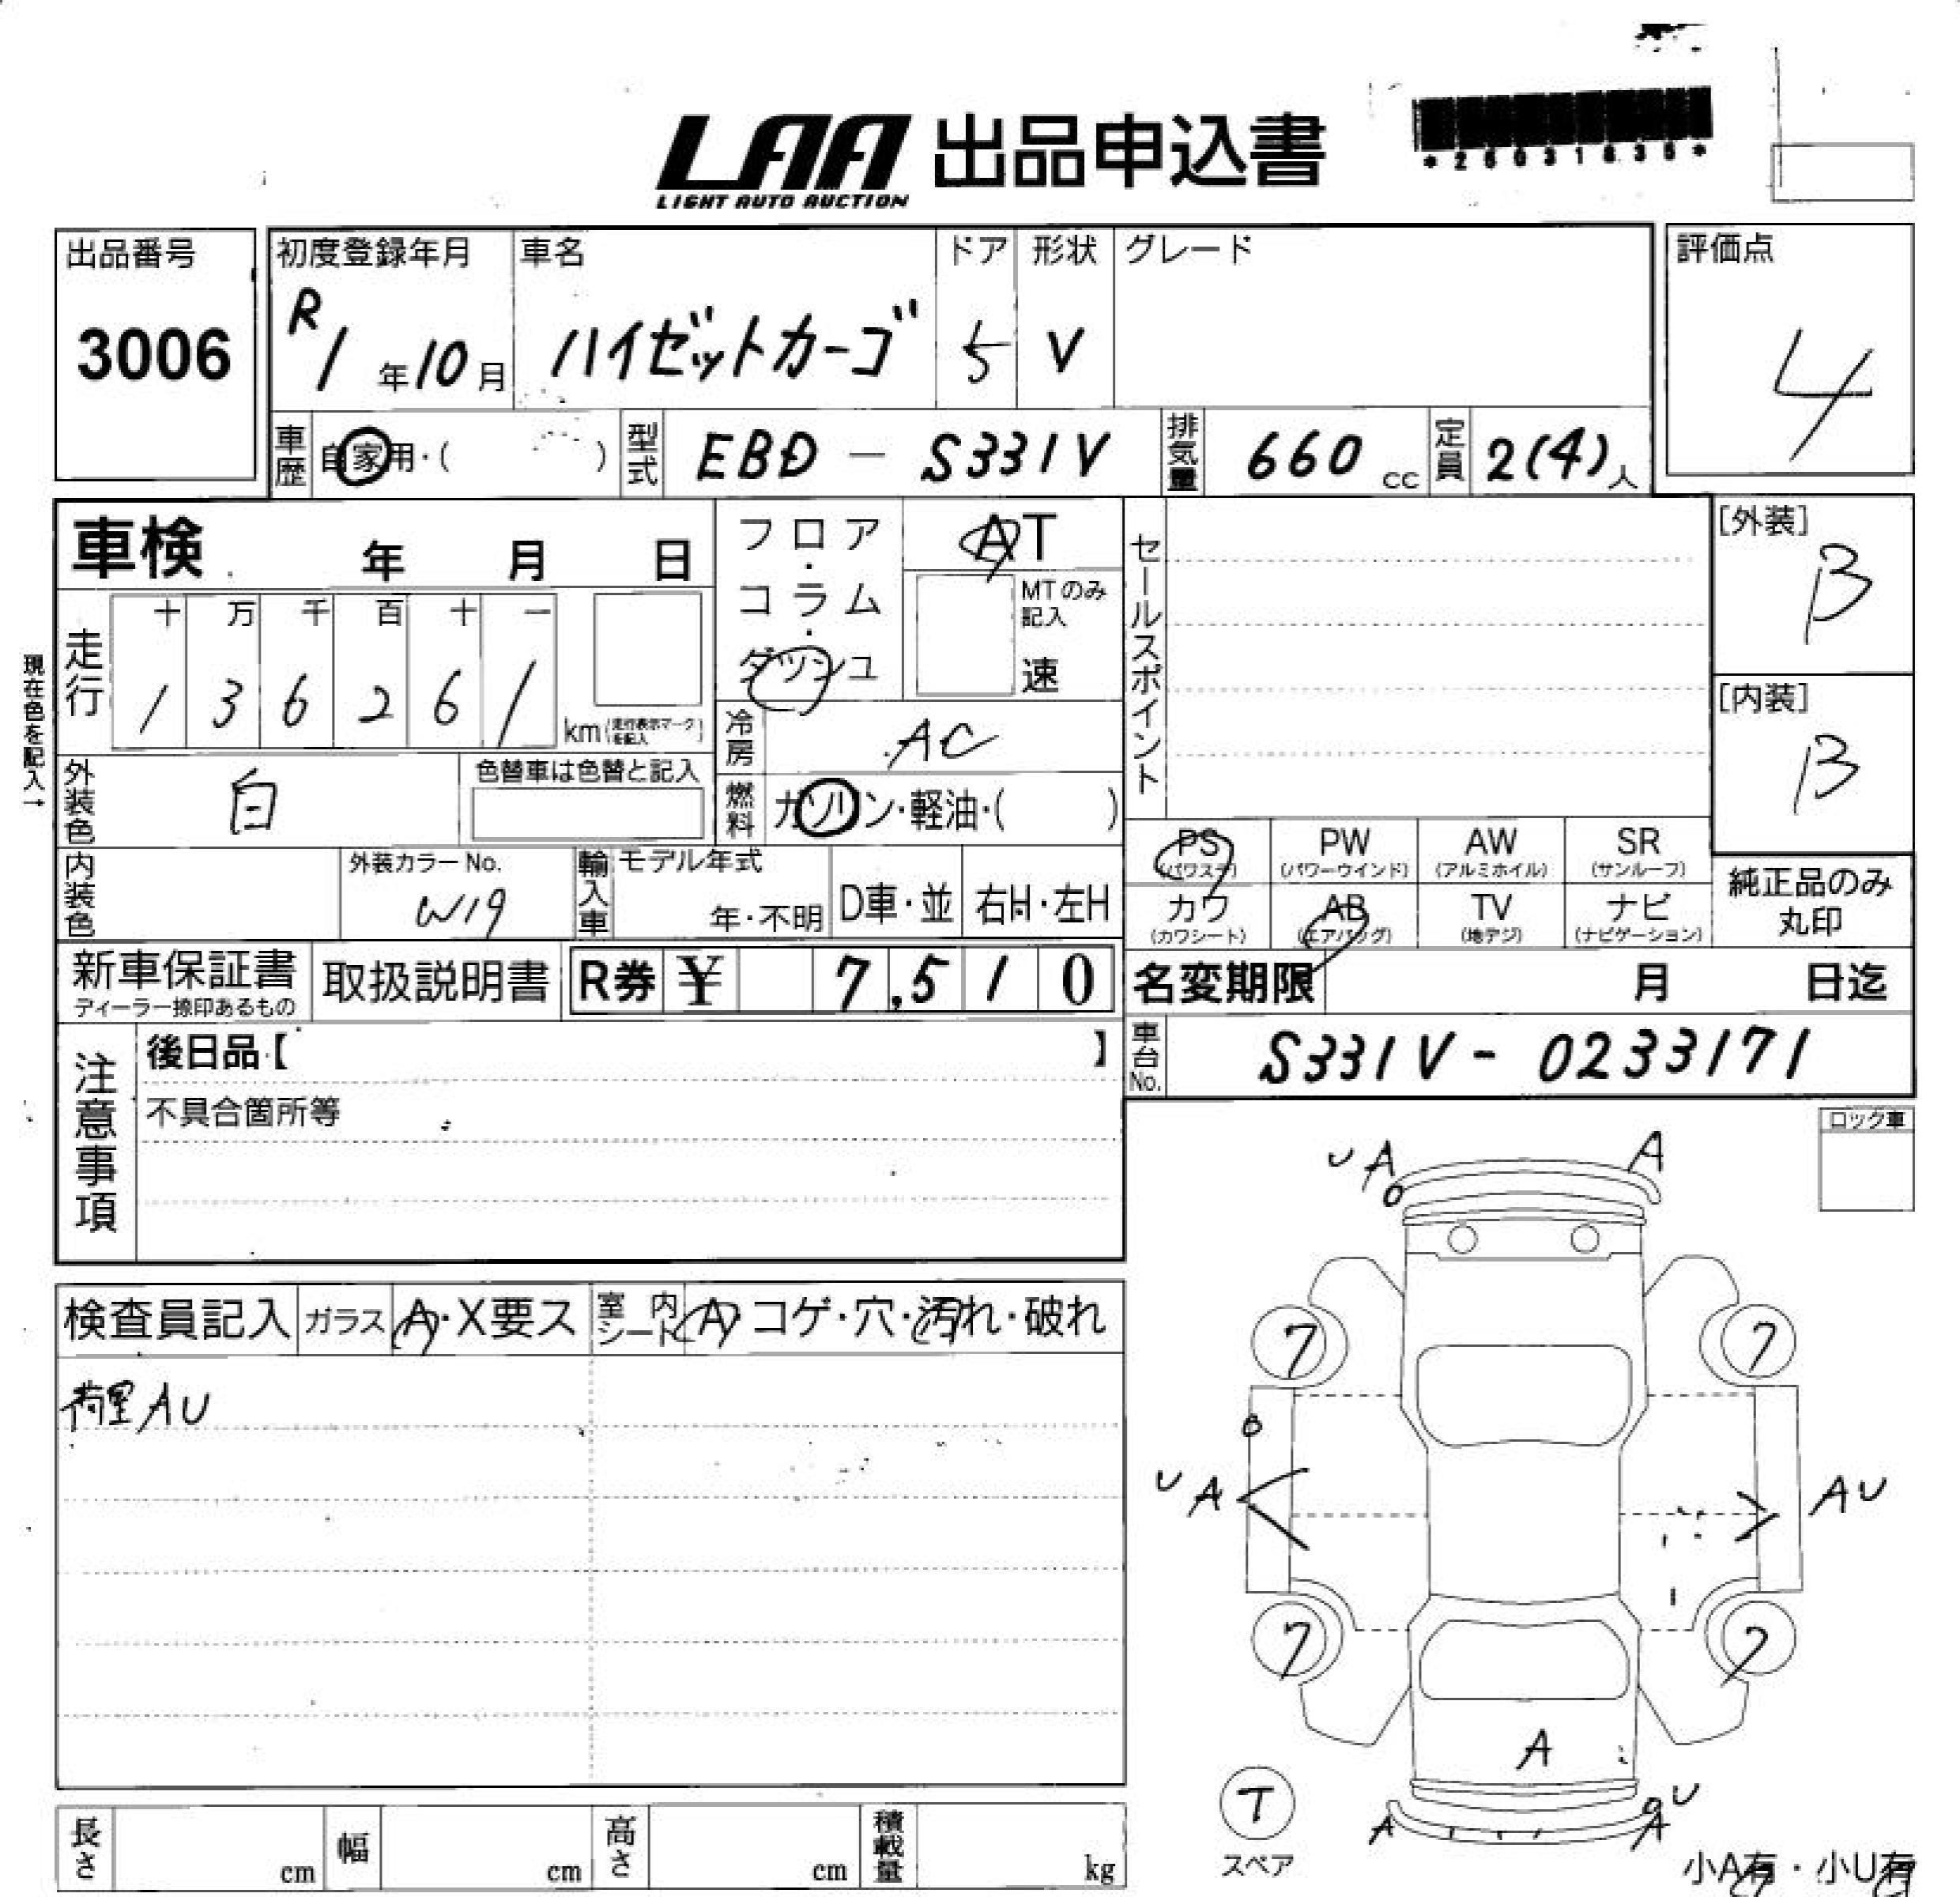 LAA 出品申込書
LIGHT AUTO AUCTION
出品番号
3006
初度登録年月
R1年10月
車名
ハイゼットカーゴ
ドア
5
形状
V
グレード
評価点
4
車歴 自家用・( )
型式 EBD - S331V
排気量 660 cc
定員 2(4)人
車検 年 月 日
フロア・コラム・ダッシュ
AT
MTのみ記入
速
セールスポイント
[外装]
B
[内装]
B
現在色を記入→
走行
十 万 千 百 十 一
1 3 6 2 6 1 km (走行表示マークを記入)
冷房 AC
燃料 ガソリン・軽油・( )
外装色 白
色替車は色替と記入
内装色
外装カラーNo.
W19
輸入車 モデル年式
年・不明
D車・並
右H・左H
PS (パワステ)
PW (パワーウインド)
AW (アルミホイル)
SR (サンルーフ)
カワ (カワシート)
AB (エアバッグ)
TV (地デジ)
ナビ (ナビゲーション)
純正品のみ
丸印
新車保証書
ディーラー捺印あるもの
取扱説明書
R券 ¥ 7,510
名変期限 月 日迄
車台No. S331V - 0233171
注意事項
後日品【 】
不具合箇所等
ロック車
検査員記入
ガラス A・X要ス
室内シート A・コゲ・穴・汚れ・破れ
荷室AU
U A
A
7
7
U A
A U
7
7
A
T
スペア
A
U
A
小A有・小U有
長さ cm
幅 cm
高さ cm
積載量 kg